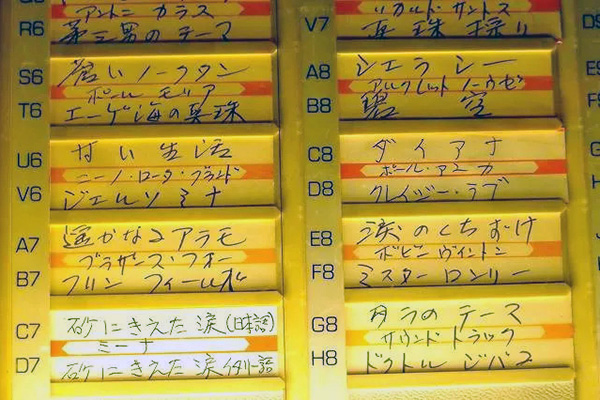 アントニ カラス
R6 第三男のテーマ
S6 蒼いノクタン
ポール モリア
T6 エーゲ海の真珠
U6 甘い生活
ニーノ・ロータ・グランド
V6 ジェルソミナ
A7 遥かなるアラモ
ブラザース・フォー
B7 グリン フィールド
C7 砂にきえた涙(日本語)
ミーナ
D7 砂にきえた涙イタリー語
リカルド・サントス
V7 真珠採り
A8 シェラシー
アルフレット ハウゼ
B8 碧空
C8 ダイアナ
ポール・アンカ
D8 クレイジー・ラブ
E8 涙のくちずけ
ボビー ヴィントン
F8 ミスターロンリー
G8 タラのテーマ
サウンド トラック
H8 ドクトル ジバゴ
D9
E9
F9